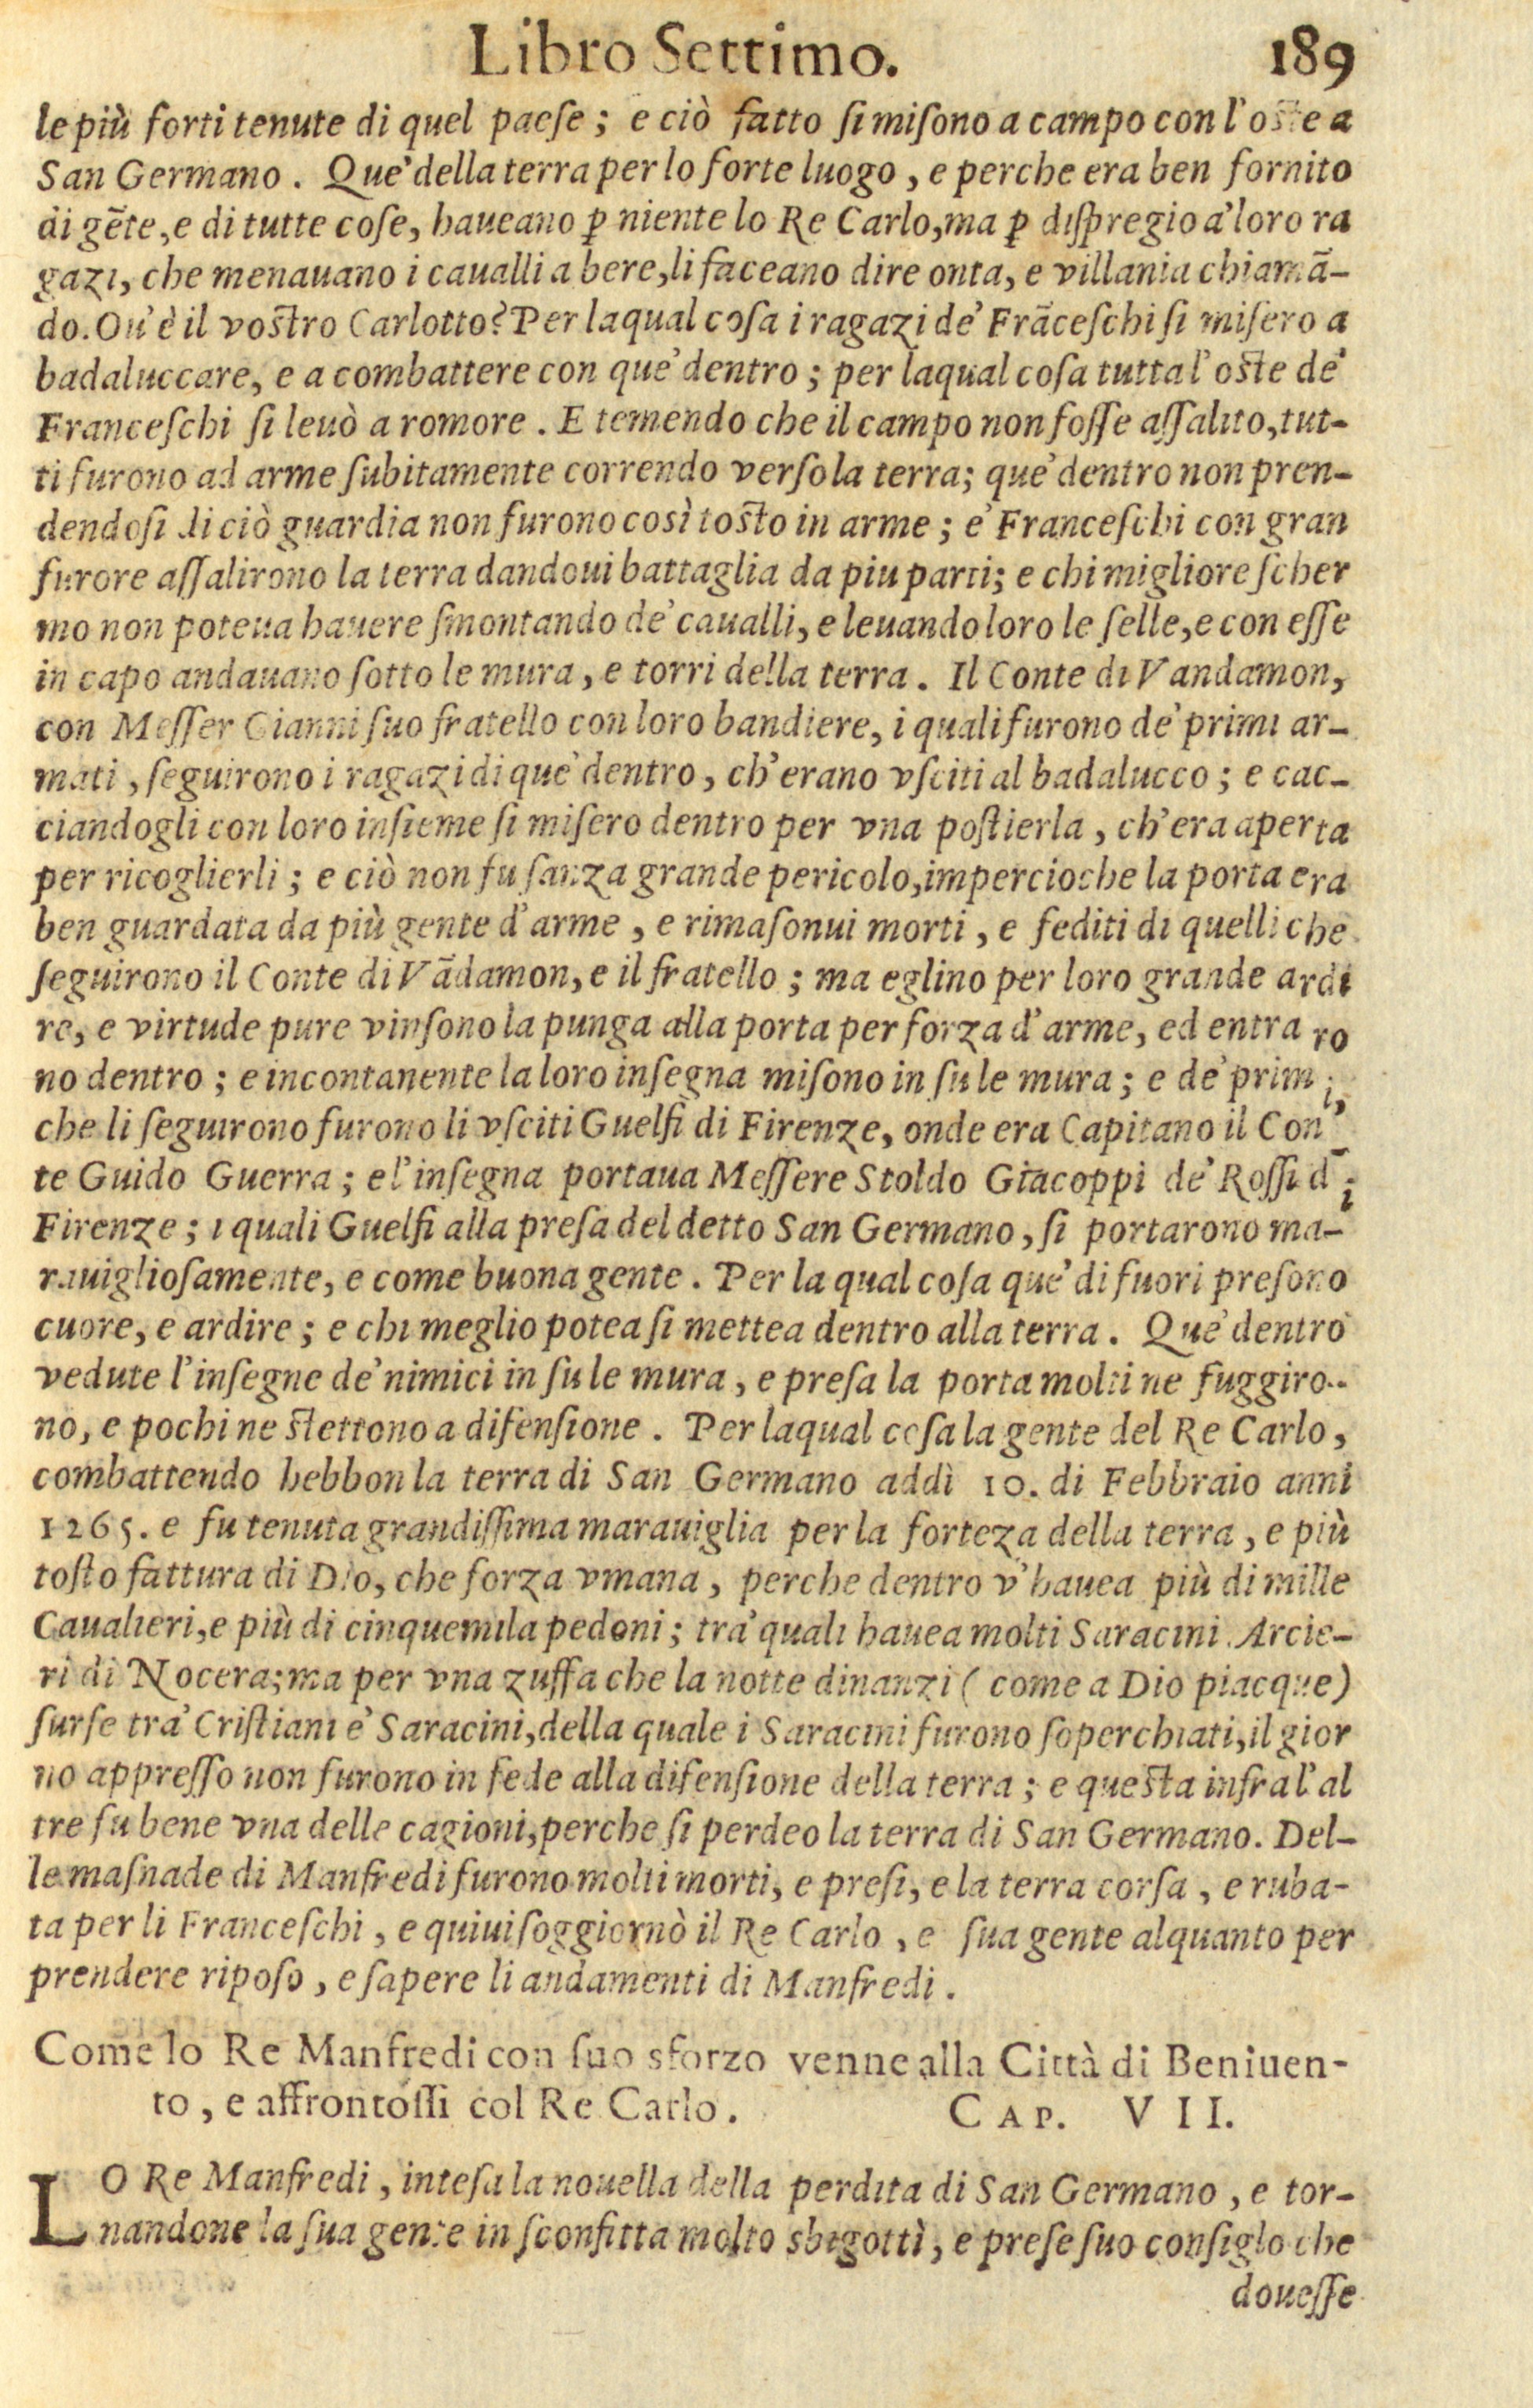 Libro Settimo. 189
le più forti tenute di quel paeſe; e ciò fatto ſi miſono a campo con l'oſte a
San Germano. Que' della terra per lo forte luogo, e perche era ben fornito
di gẽte, e di tutte coſe, haueano ꝑ niente lo Re Carlo, ma ꝑ diſpregio a' loro ra
gazi, che menauano i caualli a bere, li faceano dire onta, e villania chiamã-
do. Ou'è il voſtro Carlotto? Per laqual coſa i ragazi de' Frãceſchi ſi miſero a
badaluccare, e a combattere con que' dentro; per laqual coſa tutta l'oſte de'
Franceſchi ſi leuò a romore. E temendo che il campo non foſſe aſſalito, tut-
ti furono ad arme ſubitamente correndo verſo la terra; que' dentro non pren-
dendoſi di ciò guardia non furono così toſto in arme; e' Franceſchi con gran
furore aſſalirono la terra dandoui battaglia da piu parti; e chi migliore ſcher
mo non poteua hauere ſmontando de' caualli, e leuando loro le ſelle, e con eſſe
in capo andauano ſotto le mura, e torri della terra. Il Conte di Vandamon,
con Meſſer Gianni ſuo fratello con loro bandiere, i quali furono de' primi ar-
mati, ſeguirono i ragazi di que' dentro, ch'erano vſciti al badalucco; e cac-
ciandogli con loro inſieme ſi miſero dentro per vna poſtierla, ch'era aperta
per ricoglierli; e ciò non fu ſanza grande pericolo, impercioche la porta era
ben guardata da più gente d'arme, e rimaſonui morti, e fediti di quelli che
ſeguirono il Conte di Vãdamon, e il fratello; ma eglino per loro grande ardi
re, e virtude pure vinſono la punga alla porta per forza d'arme, ed entra ro
no dentro; e incontanente la loro inſegna miſono in ſu le mura; e de' primi,
che li ſeguirono furono li vſciti Guelfi di Firenze, onde era Capitano il Con-
te Guido Guerra; e l'inſegna portaua Meſſere Stoldo Giacoppi de' Roſſi di
Firenze; i quali Guelfi alla preſa del detto San Germano, ſi portarono ma-
rauiglioſamente, e come buona gente. Per la qual coſa que' di fuori preſono
cuore, e ardire; e chi meglio potea ſi mettea dentro alla terra. Que' dentro
vedute l'inſegne de' nimici in ſu le mura, e preſa la porta molti ne fuggiro-
no, e pochi ne ſtettono a difenſione. Per laqual coſa la gente del Re Carlo,
combattendo hebbon la terra di San Germano addì 10. di Febbraio anni
1265. e fu tenuta grandiſſima marauiglia per la forteza della terra, e più
toſto fattura di Dio, che forza vmana, perche dentro v'hauea più di mille
Caualieri, e più di cinquemila pedoni; tra' quali hauea molti Saracini Arcie-
ri di Nocera; ma per vna zuffa che la notte dinanzi ( come a Dio piacque)
ſurſe tra' Criſtiani e' Saracini, della quale i Saracini furono ſoperchiati, il gior
no appreſſo non furono in fede alla difenſione della terra; e queſta infra l'al
tre fu bene vna delle cagioni, perche ſi perdeo la terra di San Germano. Del-
le maſnade di Manfredi furono molti morti, e preſi, e la terra corſa, e ruba-
ta per li Franceſchi, e quiui ſoggiornò il Re Carlo, e ſua gente alquanto per
prendere ripoſo, e ſapere li andamenti di Manfredi.
Come lo Re Manfredi con ſuo sforzo venne alla Città di Beniuen-
to, e affrontoſſi col Re Carlo. CAP. VII.
LO Re Manfredi, inteſa la nouella della perdita di San Germano, e tor-
nandone la ſua gente in ſconfitta molto sbigottì, e preſe ſuo conſiglo che
doueſſe